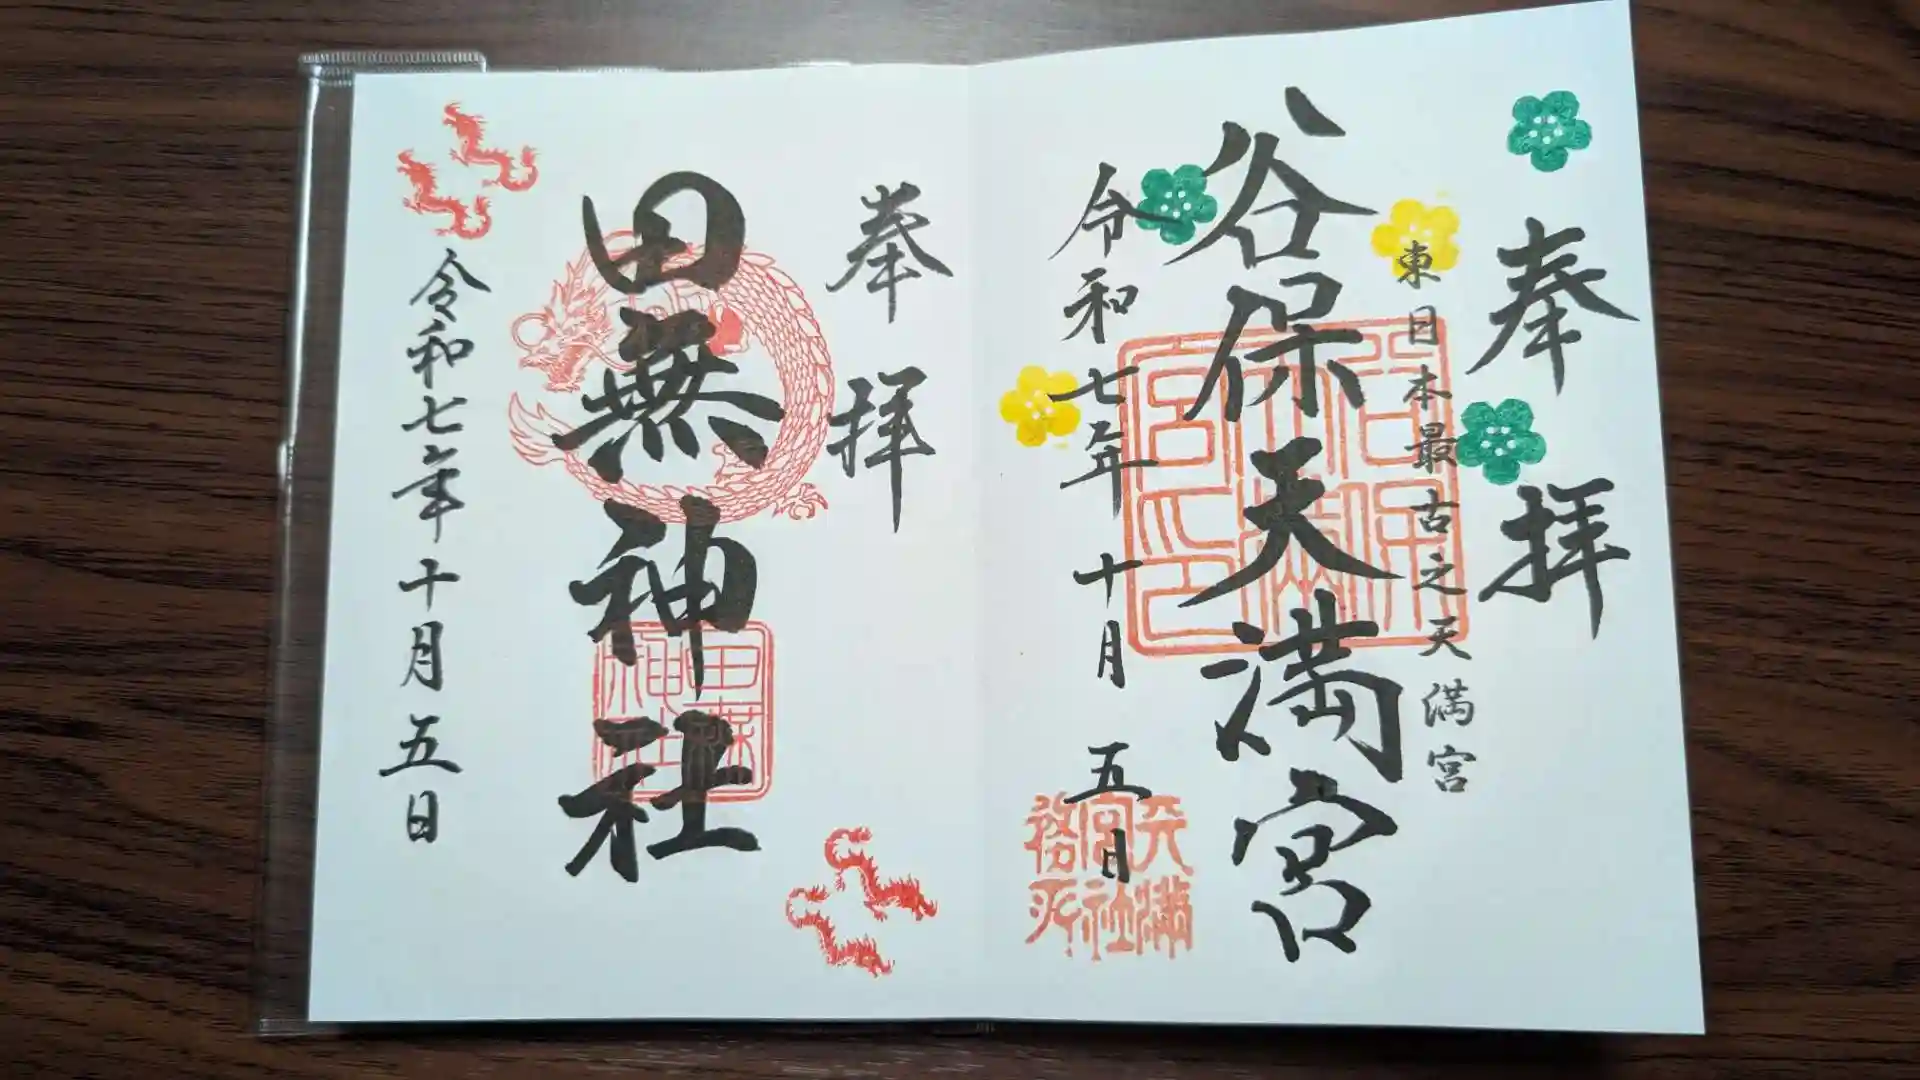 奉拝
東日本最古之天満宮
谷保天満宮
令和七年十月五日
谷保天満宮印
天満宮社務所
奉拝
田無神社
田無神社
令和七年十月五日